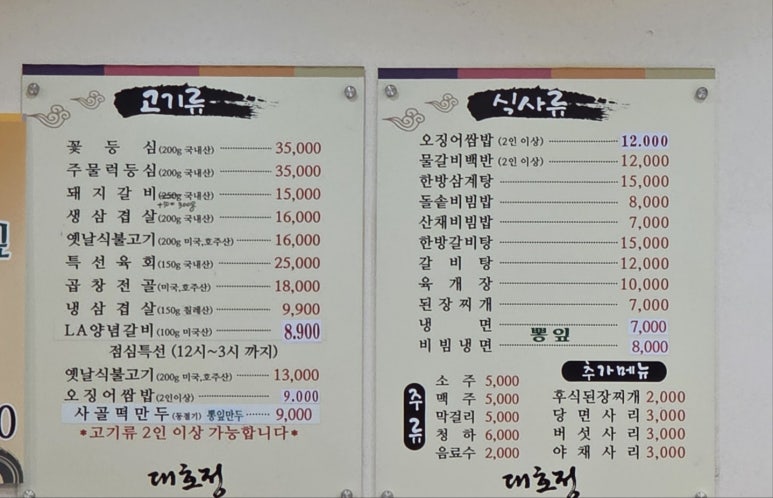 고기류
꽃등심(200g 국내산) 35,000
주물럭등심(200g 국내산) 35,000
돼지갈비(250g 국내산) 15,000
생삼겹살(200g 국내산) 16,000
옛날식불고기(200g 미국,호주산) 16,000
특선육회(150g 국내산) 25,000
곱창전골(미국,호주산) 18,000
냉삼겹살(150g 칠레산) 9,900
LA양념갈비(100g 미국산) 8.900
점심특선 (12시~3시 까지)
옛날식불고기(200g 미국,호주산) 13,000
오징어쌈밥(2인이상) 9.000
사골떡만두(동절기) 뽕잎만두 9,000
*고기류 2인 이상 가능합니다*
대호정
식사류
오징어쌈밥 (2인 이상) 12.000
물갈비백반 (2인 이상) 12,000
한방삼계탕 15,000
돌솥비빔밥 8,000
산채비빔밥 7,000
한방갈비탕 15,000
갈비탕 12,000
육개장 10,000
된장찌개 7,000
냉면 7,000
뽕잎
비빔냉면 8,000
주류
소주 5,000
맥주 5,000
막걸리 5,000
청하 6,000
음료수 2,000
추가메뉴
후식된장찌개 2,000
당면사리 3,000
버섯사리 3,000
야채사리 3,000
대호정